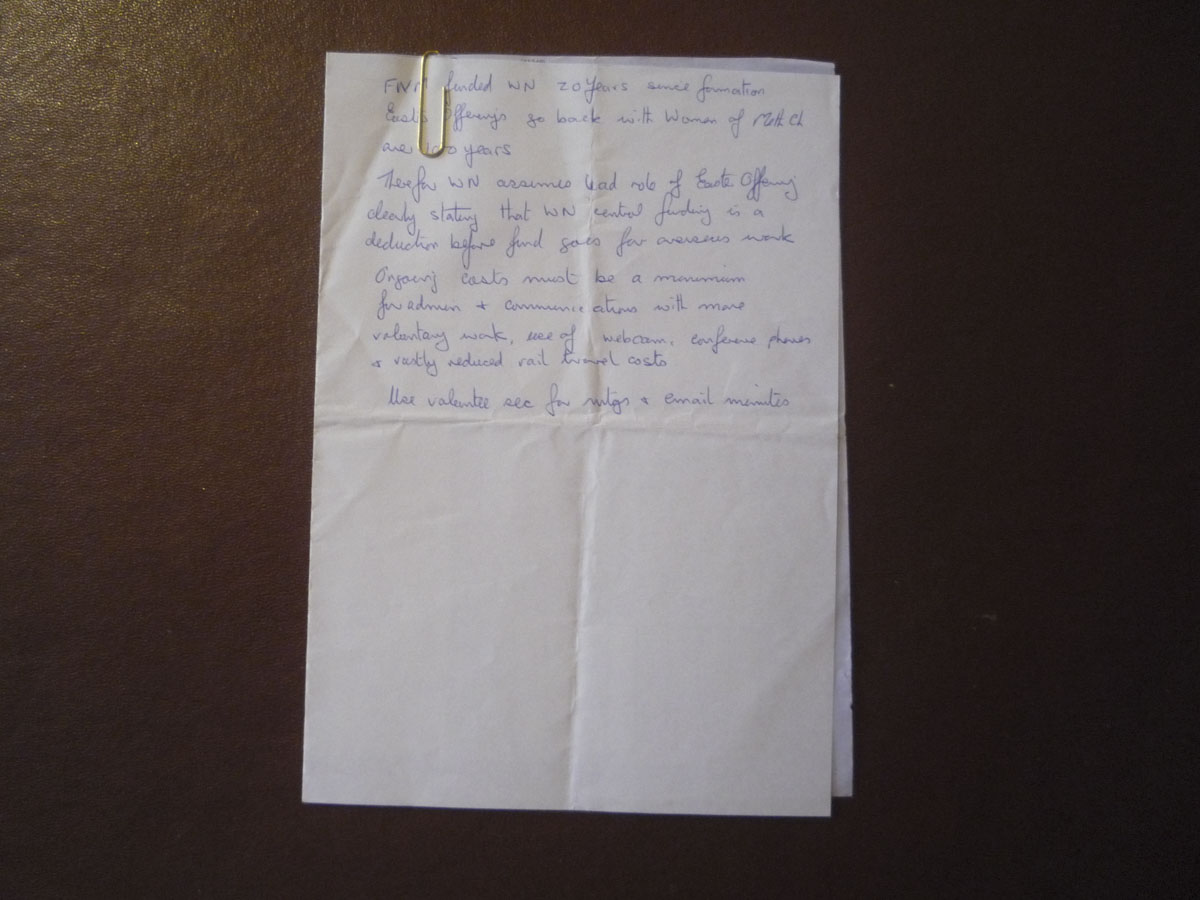 funded WN 20 Years since formation
Offerings go back with Women of Meth Ch
years
WN assumes lead role of Easter Offering
clearly stating that WN central funding is a
deduction before fund goes for overseas work
Ongoing costs must be a minimum
for admin + communications with more
voluntary work, use of webcam, conference phones
+ vastly reduced rail travel costs
Use volunteer sec for mtgs + email minutes